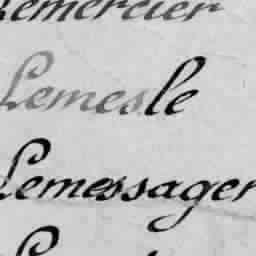 Lemercier
Lemesle
Lemessager